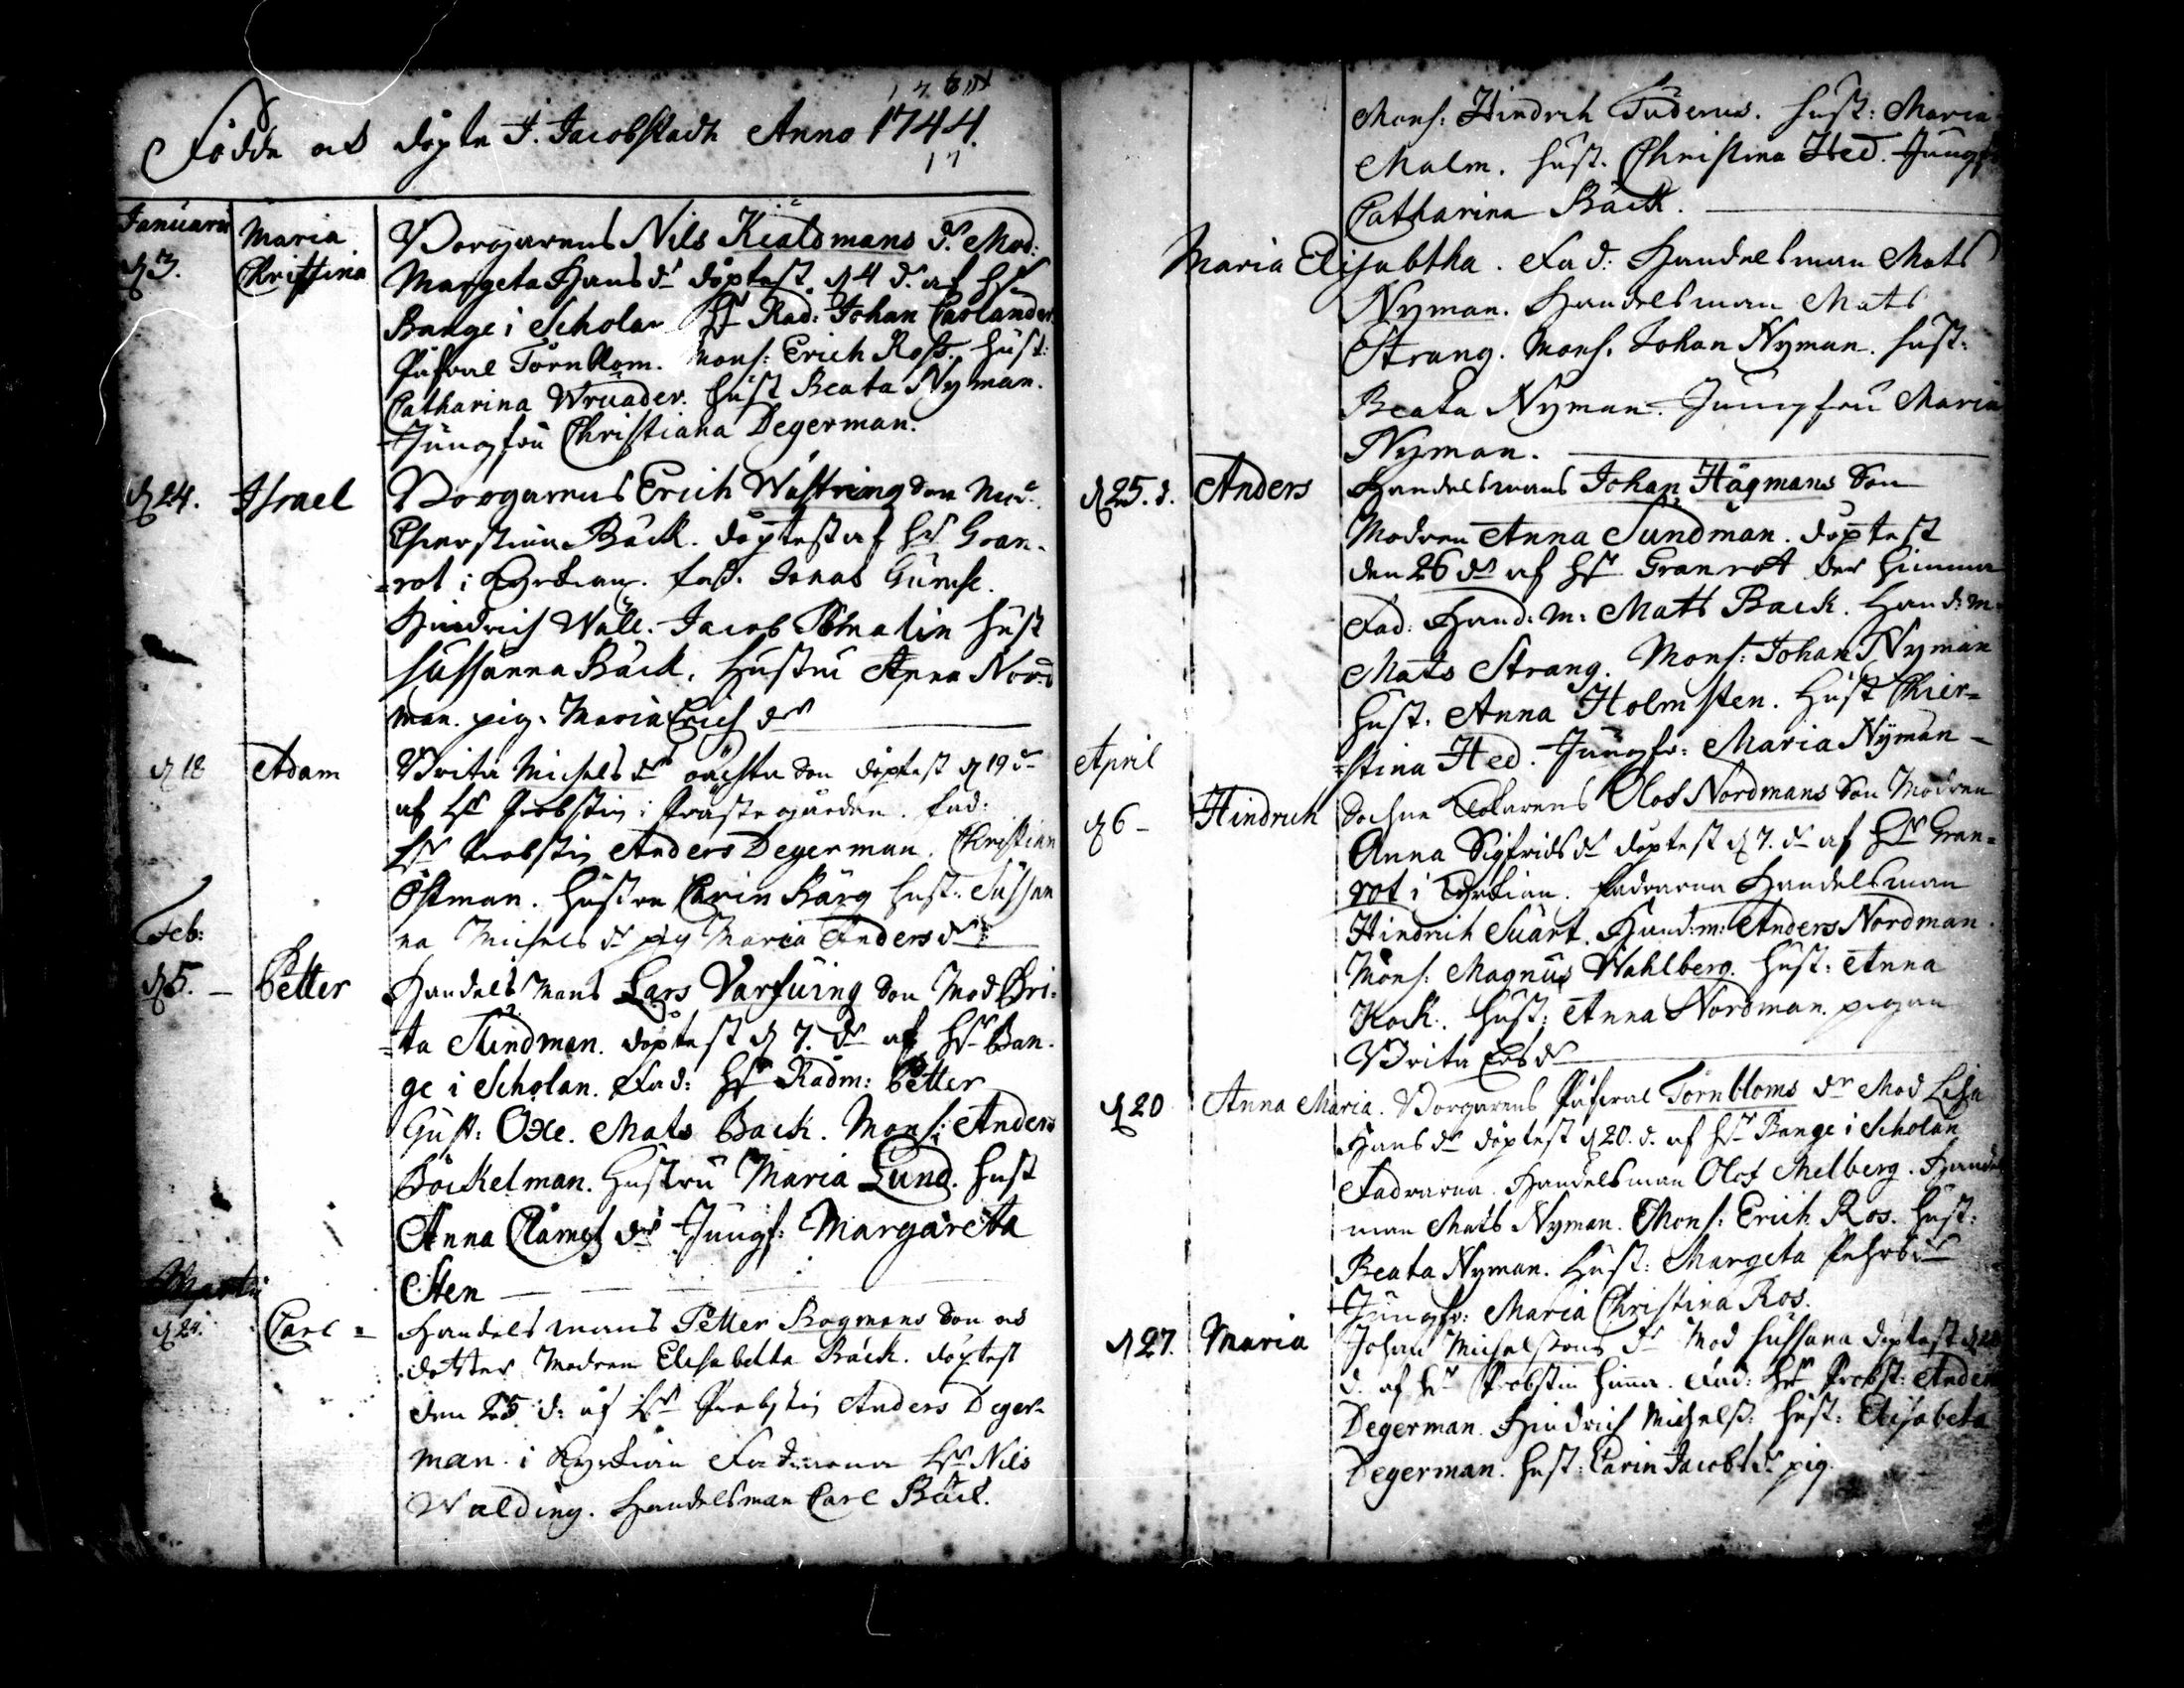 Födde och döpte I. Jacobstadh Anno 1744.
17
Januarii
d 3.
Maria
Christina
Borgarens Nils Kialdmans dr. Mod:
Margeta Hans dr döptest d 4 d. af Hr
Bange i Scholan Hr Råd: Johan Carlander
Påhwal Törnblom. Mons: Erich Ross. Hust:
Catharina Wruader. Hust Beata Nyman.
Jungfru Christiana Degerman.
d 24. Israel Borgarens Erich Wästring Son Mod
Cherstina Bäck. döptest af Hr Gran-
=rot i Kyrkian. fad. Jonas Gumse.
Hindrich Wäll. Jacob Malin Hust
Sussanna Bäck. Hustru Anna Nord
man. pig. Maria Erich dr
d 18 Adam Brita Michels dr oächta Son döptest d 19 d
af Hr Probsten i Prästegården. fad:
Hr Probsten Anders Degerman. Christian
Östman. Hustru Carin Bärg Hust: Sussan
na Michels dr pig Maria Anders dr
Feb:
d 5. Petter Handels Mans Lars Varfuing Son Mod Bri-
=ta Sundman. döptest d 7. dr af Hr Ban-
ge i Scholan. Fad: Hr Rådm: Petter
Gust: Oxe. Mats Back. Mons: Anders
Böckelman. Hustru Maria Lund. Hust
Anna Clämets dr Jungf: Margareta
Sten
Martii
d 24. Carl = Handels mans Petter Bogmans Son och
dotter Modren Elisabetta Bäck. döptest
den 25 d: af Hr Probsten Anders Deger-
man i Kyrkian Fadrarna Hr Nils
Walding. Handelsman Carl Bäck.
Mons: Hindrch Tuderus. Hust: Maria
Malm. Hust. Christina Hed. Jungfr
Catharina Bäck.
Maria Elisabtha. Fad: Handelsman Mats
Nyman. Handelsman Mats
Strang. Mons. Johan Nyman. Hust:
Beata Nyman. Jungfru Maria
Nyman.
d 25. d. Anders Handelsmans Johan Hägmans Son
Modren Anna Sundman. döptest
den 26 dr af Hr Granrot der Himma
Fad: Hand: m: Mats Back. Hand: m.
Mats Strang. Mons: Johan Nyman
Hust. Anna Holmsten. Hust Chier=
=stina Hed. Jungfr: Maria Nyman
April
d 6 Hindrich Sochne Olof Nordmans Son Modren
Anna Sigfrids dr döptest d 7. dr af Hr Gran=
rot i Kyrkian. fadrarna Handelsman
Hindrich Suart. Hand: m: Anders Nordman.
Mons: Magnus Wahlberg. Hust: Anna
Kock. Hust: Anna Nordman. pigan
Brita Ers dr
d 20 Anna Maria. Borgarens Påhwal Törnbloms dr Mod Lisa
Hans dr döptest d 20. d. af Hr Bange i Scholan
Fadrarna. Handelsman Olof Melberg. Handels
man Mats Nyman. Mons: Erich Ros. Hust:
Beata Nyman. Hust: Margeta Pehrs dr
Jungfr: Maria Christina Ros.
d 27. Maria Johan Michelsons dr Mod Sussana döptest d 28
d. af Hr Probsten hima. Fad: Hr Probst: Anders
Degerman. Hindrich Michelss: Hust: Elisabeta
Degerman. Hust: Carin Jacobs dr pig.